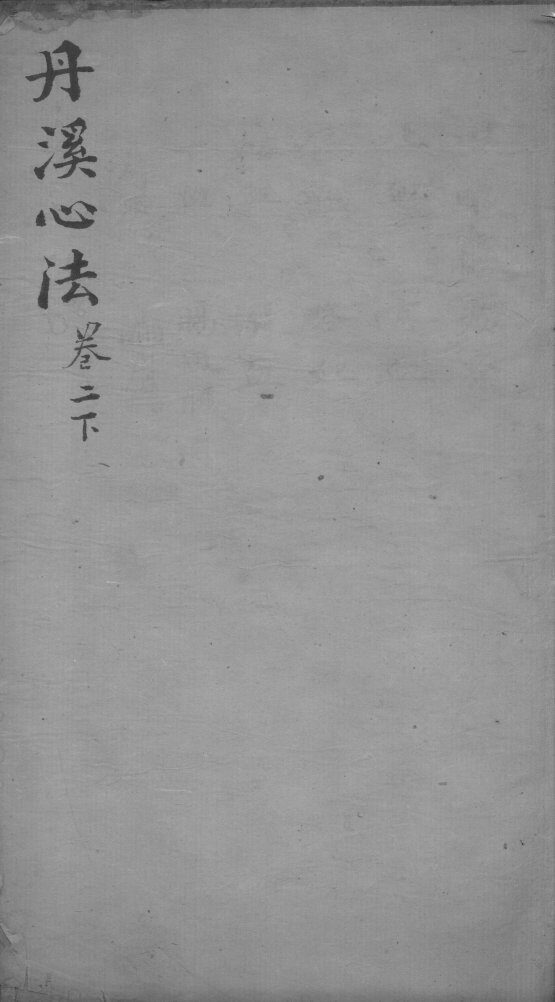 丹溪心法
卷二下